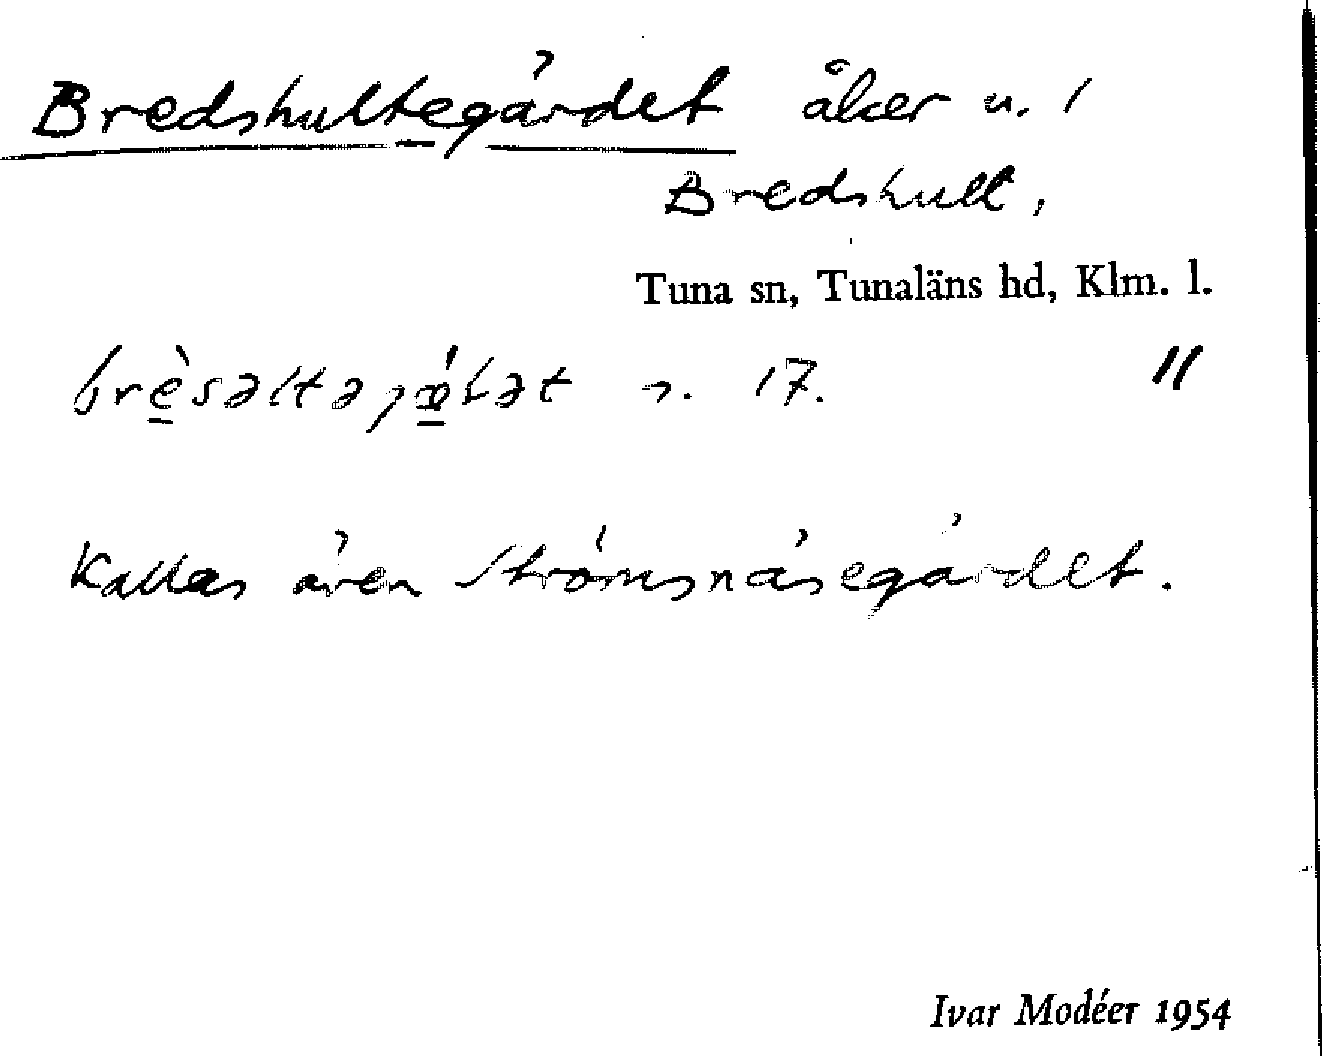 Bredshultegärdet åker u. 1
Bredshult,
Tuna sn, Tunaläns hd, Klm. l.
n. 17. "
Kallas även Strömsnäsegärdet.
Ivar Modéer 1954